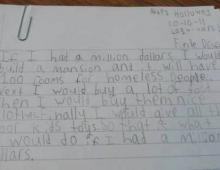 Holloway
10-16-11
If I had a million dollars I would
build a mansion and it will have
100 rooms for homeless people.
Next I would buy a lot of food
then I would buy them nice
clothes finally I would give all the
poor kids toys so that is what
I would do if I had a million
dollars.